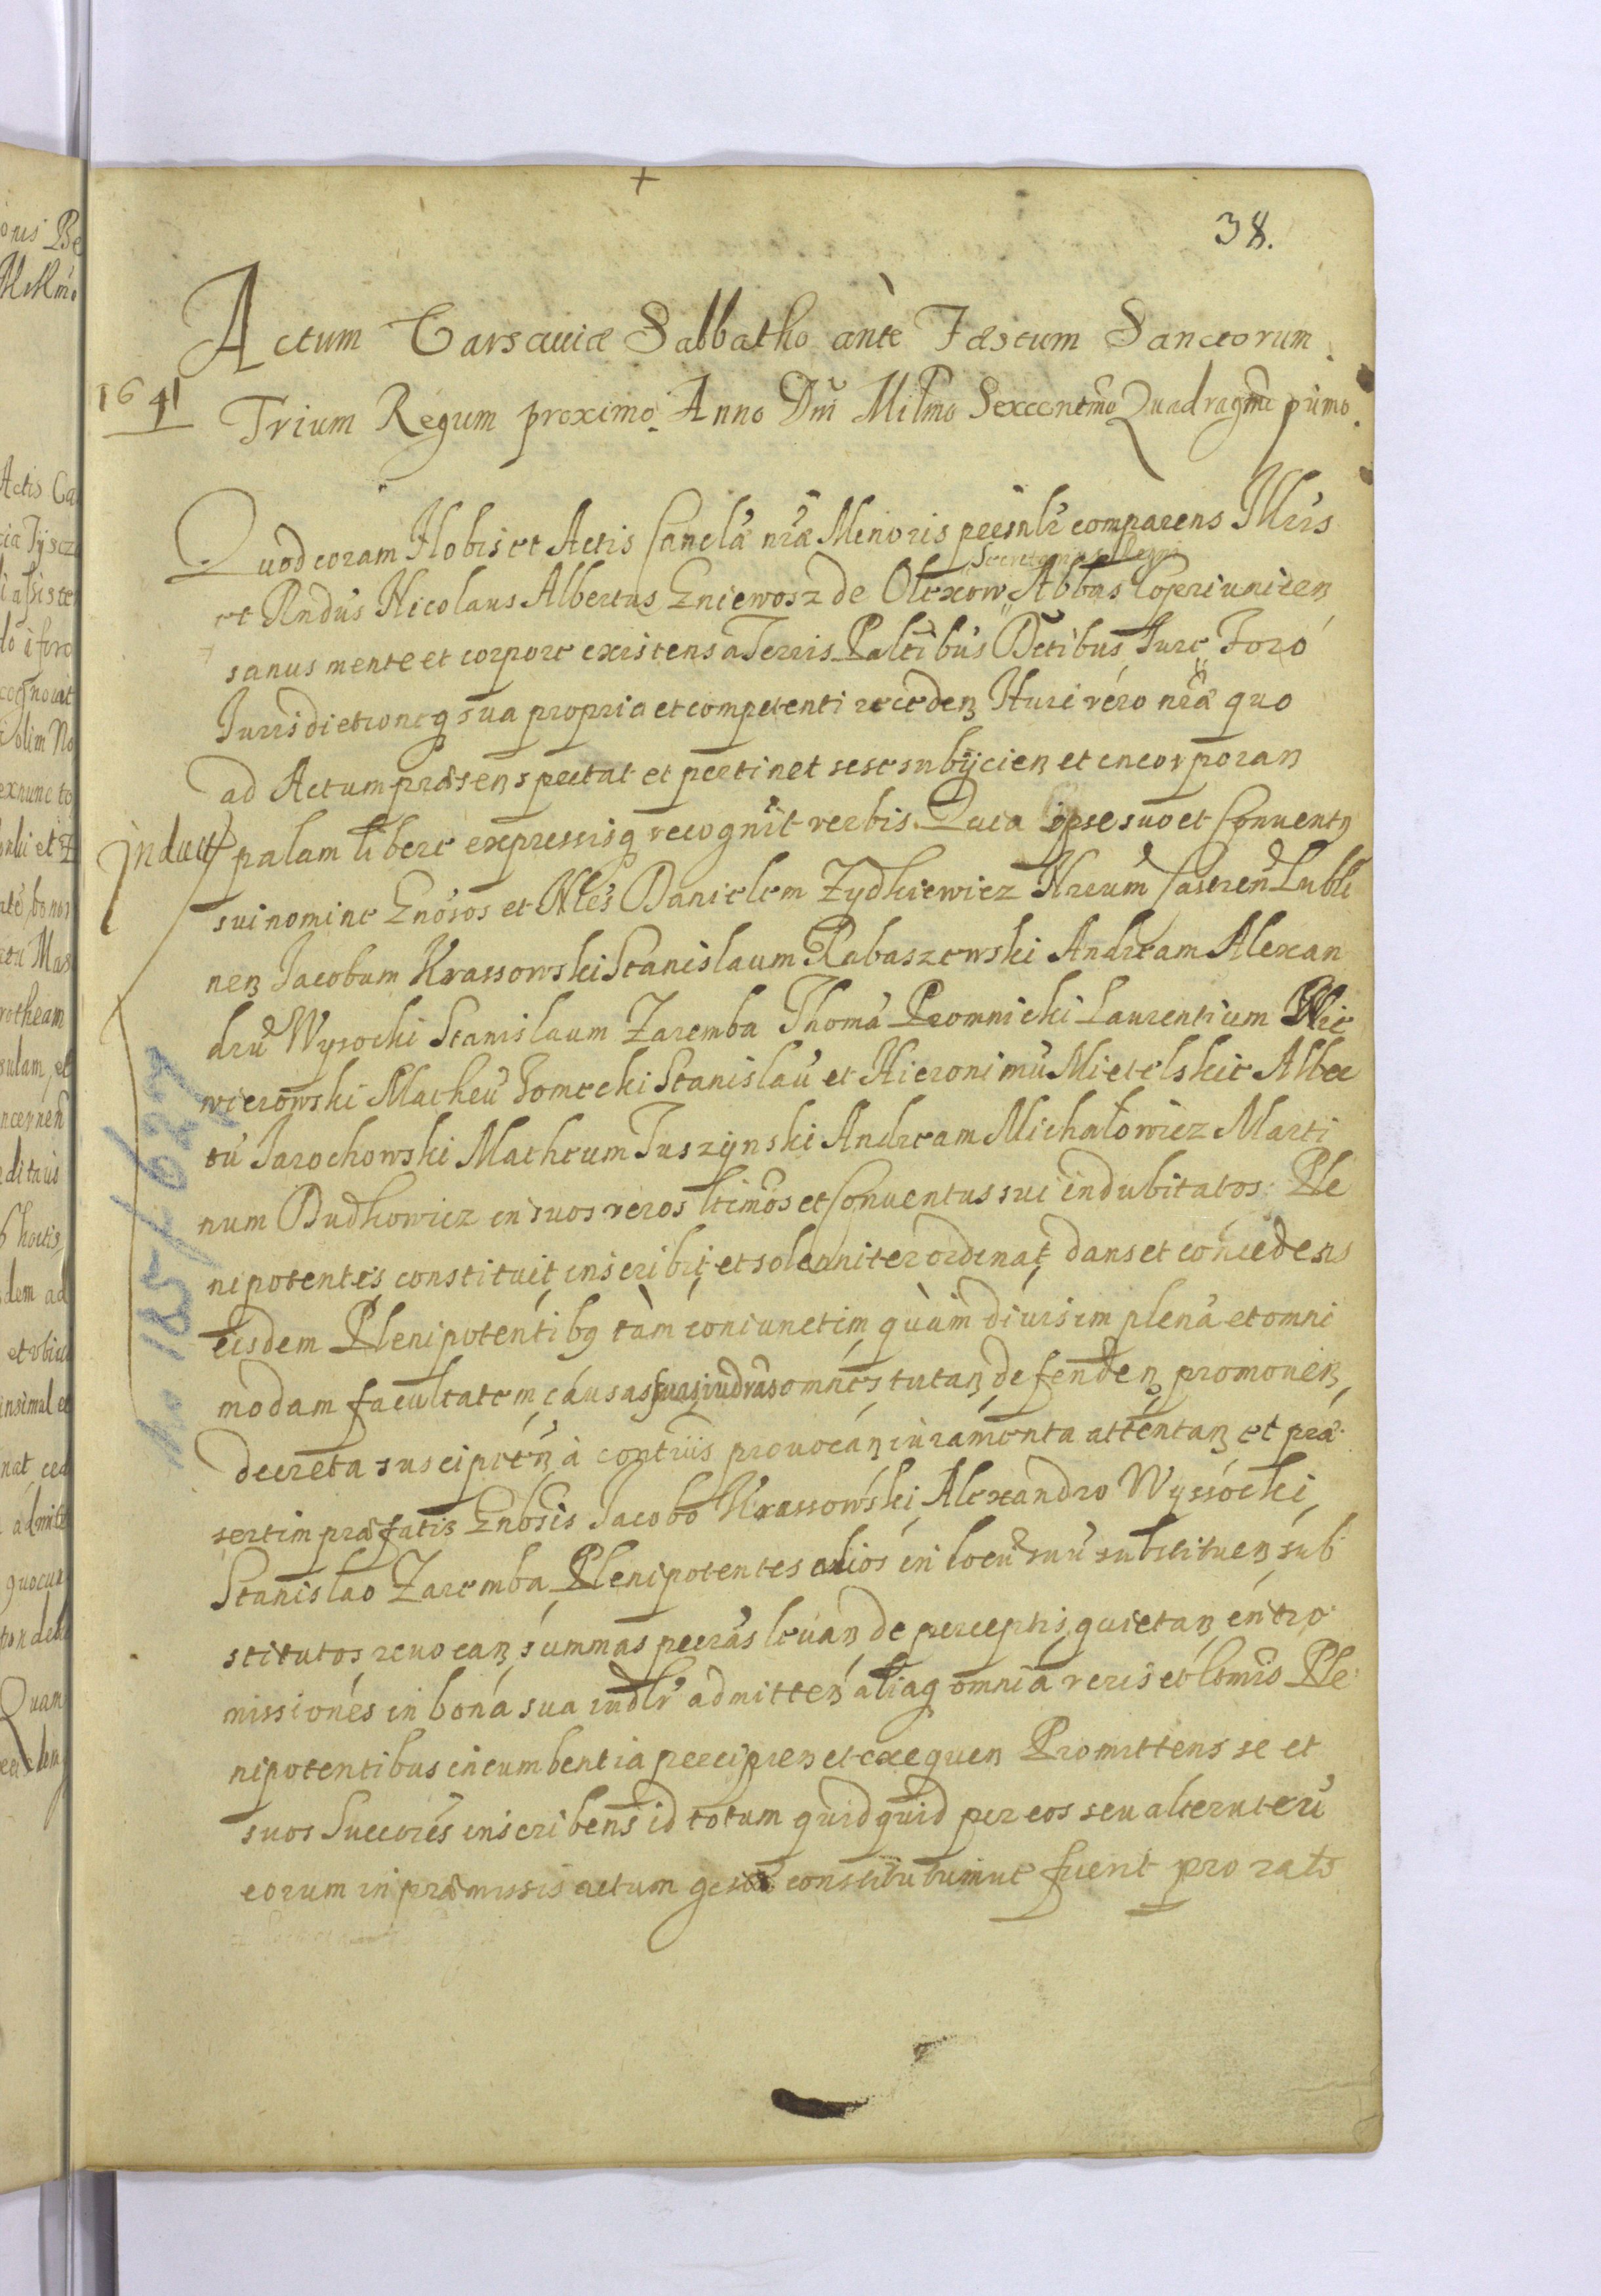 38.
Actum Varsaviæ Sabbatho antè Fæstum Sanctorum
1641
Trium Regum proximo Anno Dni Milmo Sexcentmo Quadragmo primo.
Quod coram Nobis et Actis Canclæ nræ Minoris persnlr comparens Illris
Secretarius Regni
et Rndus Nicolaus Albertus Gniewosz de Olexow Abbas Coperiunicen
sanus mente et corpore existens a Terris Palatibus Dctibus Jure Foro
Jurisdictioneq sua propria et competenti receden Huic vero nræ quo
ad Actum præsen spectat et pertinet sese subijcien et incorporan
Induct palam libere expressisq recognit verbis Quia ipse suo et Conventq
sui nomine Gnosos et Nles Danielem Zydkiewicz Nrium Castren Lubli
nen Jacobum Krassowski Stanislaum Rabaszewski Andream Alexan
dru Wysocki Stanislaum Zaremba Thoma Promnicki Laurentium Nie
wierowski Matheu Gomecki Stanislau et Hieronimu Mietelskie Alber
tu Jarochowski Matheum Tuszynski Andream Michałowicz Marti
num Budkowicz in suos veros ltimos et Conventus sui indubitatos Ple
nipotentes constituit inscribit et solenniter ordinat dans et concedens
eisdem Plenipotentibq tàm coniunctim quàm divisim plena et omni
modam facultatem causas suas iudras omnes tutan defenden promoven
decreta suscipien à contriis provocan iuramenta attentan et præ
sertim præfatis Gnosis Jacobo Krassowski Alexandro Wyssocki
Stanislao Zaremba Plenipotentes alios in locu suu substituen sub
stitutos revocan summas pecras levan de perceptis quietan intro
missiones in bona sua indlr admitten aliaq omnia veris et ltmis Ple
nipotentibus incumbentia percipien et exequen Promittens se et
suos Succores inscribens id totum quidquid per eos seu alteruteru
eorum in præmissis actum gestu constitutumve fuerit pro rato
185/627